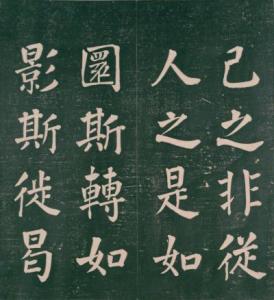 己之非從
人之是如
圜斯轉如
影斯徙曷